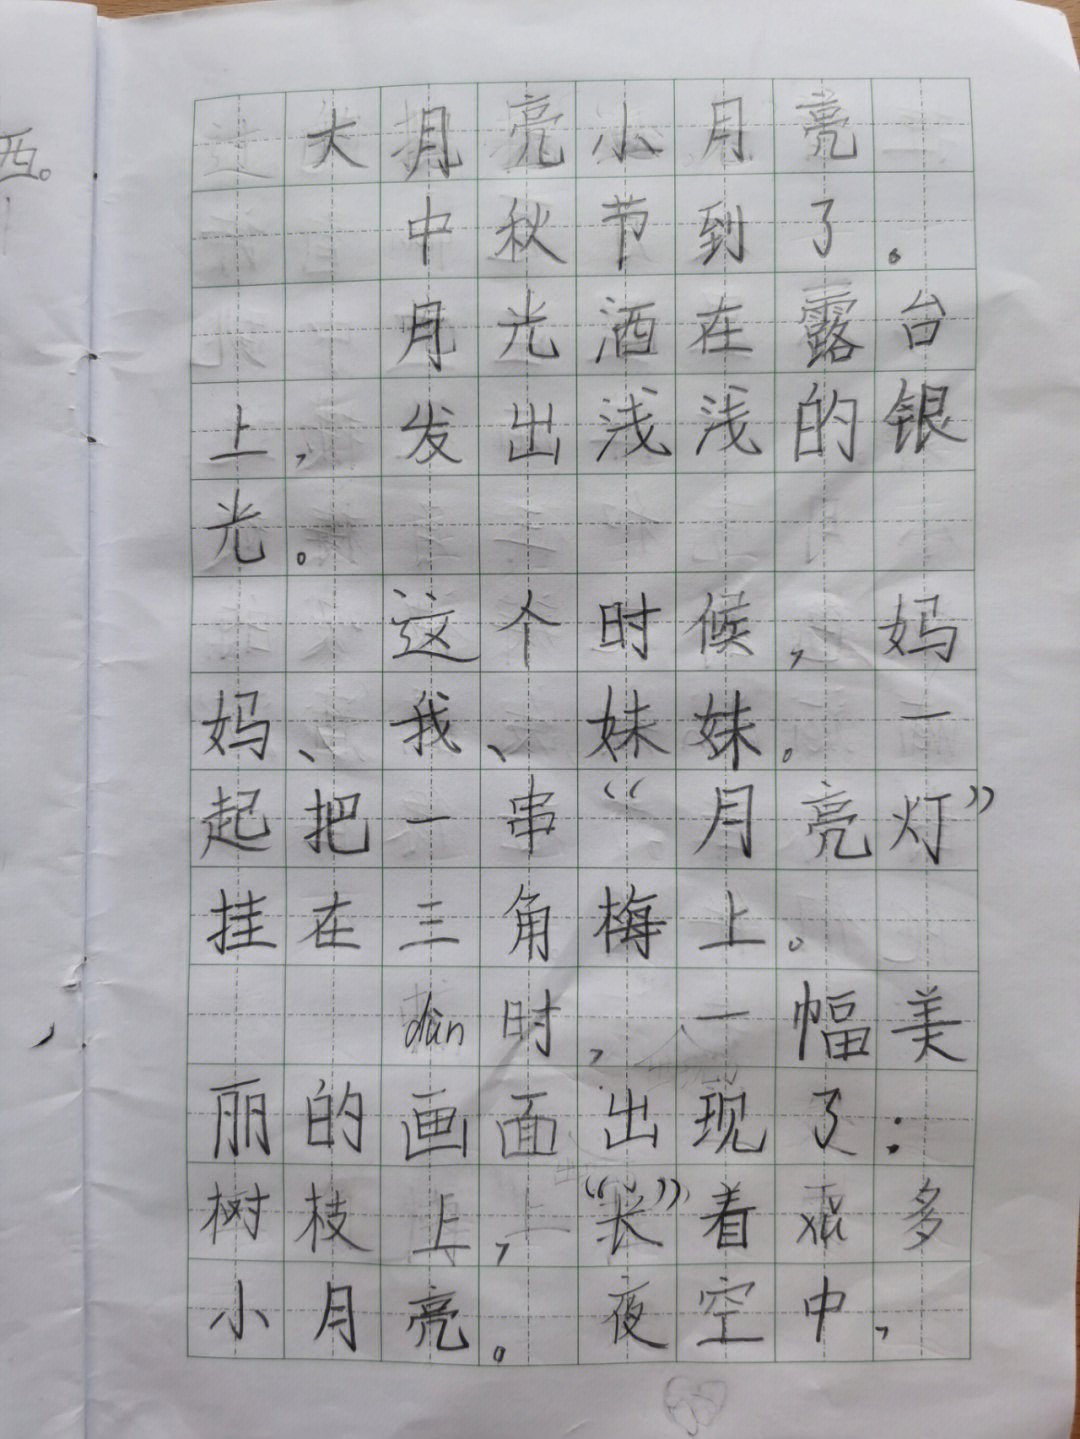 西。
大月亮小月亮
中秋节到了。
月光洒在露台
上，发出浅浅的银
光。
这个时候，妈
妈、我、妹妹。一
起把一串“月亮灯”
挂在三角梅上。
dùn时，一幅美
丽的画面出现了：
树枝上，“长”着xǔ多
小月亮。夜空中，